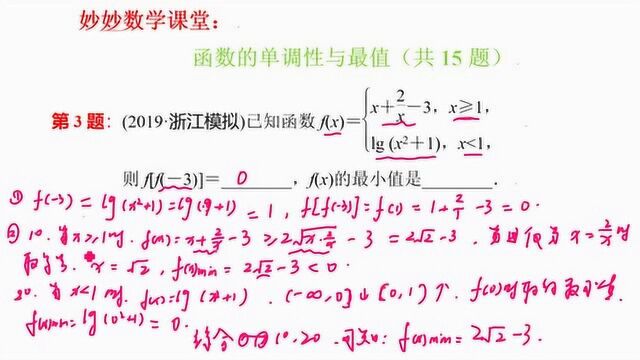 妙妙数学课堂：
函数的单调性与最值（共 15 题）
第 3 题：(2019·浙江模拟)已知函数 f(x)={x+2/x-3，x≥1，
lg (x²+1)，x<1，
则 f[f(-3)]= 0 ，f(x)的最小值是________．
① f(-3) = lg(x²+1)=lg(9+1) = 1 , f[f(-3)]=f(1) = 1+2/1 -3=0.
② 1°. 当x≥1时. f(x)=x+2/x-3 ≥2√x·2/x -3 = 2√2-3 , 当且仅当 x=2/x时
取等号. x=√2 , f(x)min = 2√2-3<0.
2°. 当x<1时. f(x)=lg(x²+1) . (-∞,0]↓ [0,1)↑. f(0)时取的最小值.
f(x)min=lg(0²+1)=0.
综合①②1°,2°. 可知: f(x)min=2√2-3.